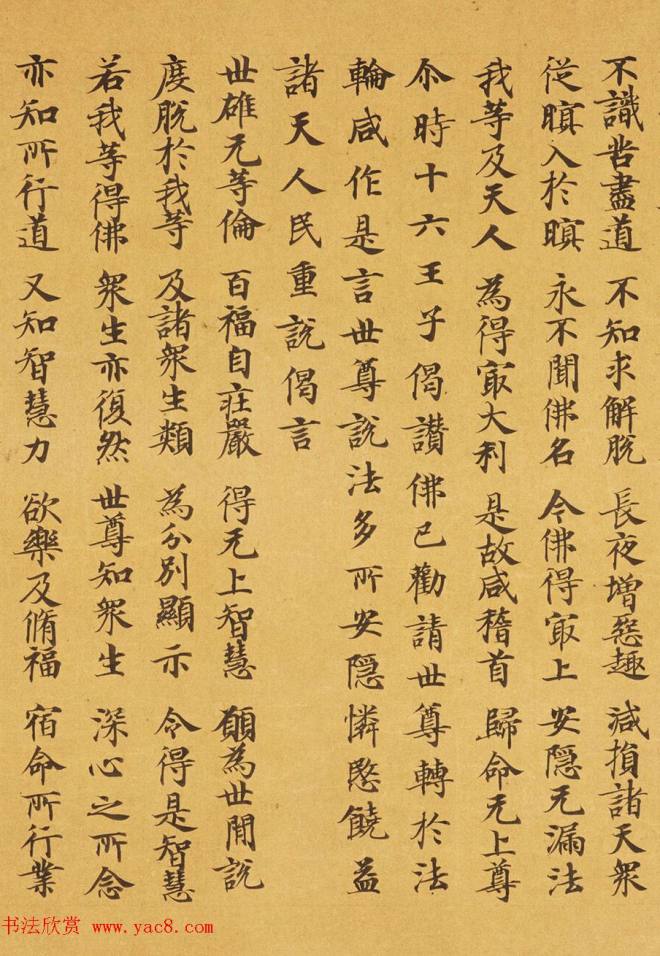 不識苦盡道 不知求解脫 長夜增惡趣 減損諸天衆
從瞑入於瞑 永不聞佛名 今佛得寂上 安隱无漏法
我等及天人 為得寂大利 是故咸稽首 歸命无上尊
尒時十六王子偈讃佛已勸請世尊轉於法
輪咸作是言世尊說法多所安隱憐愍饒益
諸天人民重說偈言
世雄无等倫 百福自莊嚴 得无上智慧 願為世間說
度脫於我等 及諸衆生類 為分別顯示 令得是智慧
若我等得佛 衆生亦復然 世尊知衆生 深心之所念
亦知所行道 又知智慧力 欲樂及脩福 宿命所行業
书法欣赏 www.yac8.com